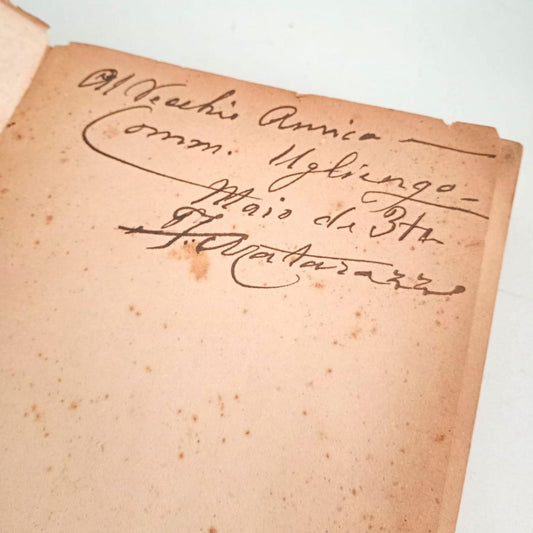 Al Vecchio Amico
Comm. Ugliengo
Maio de 34
F. Matarazzo